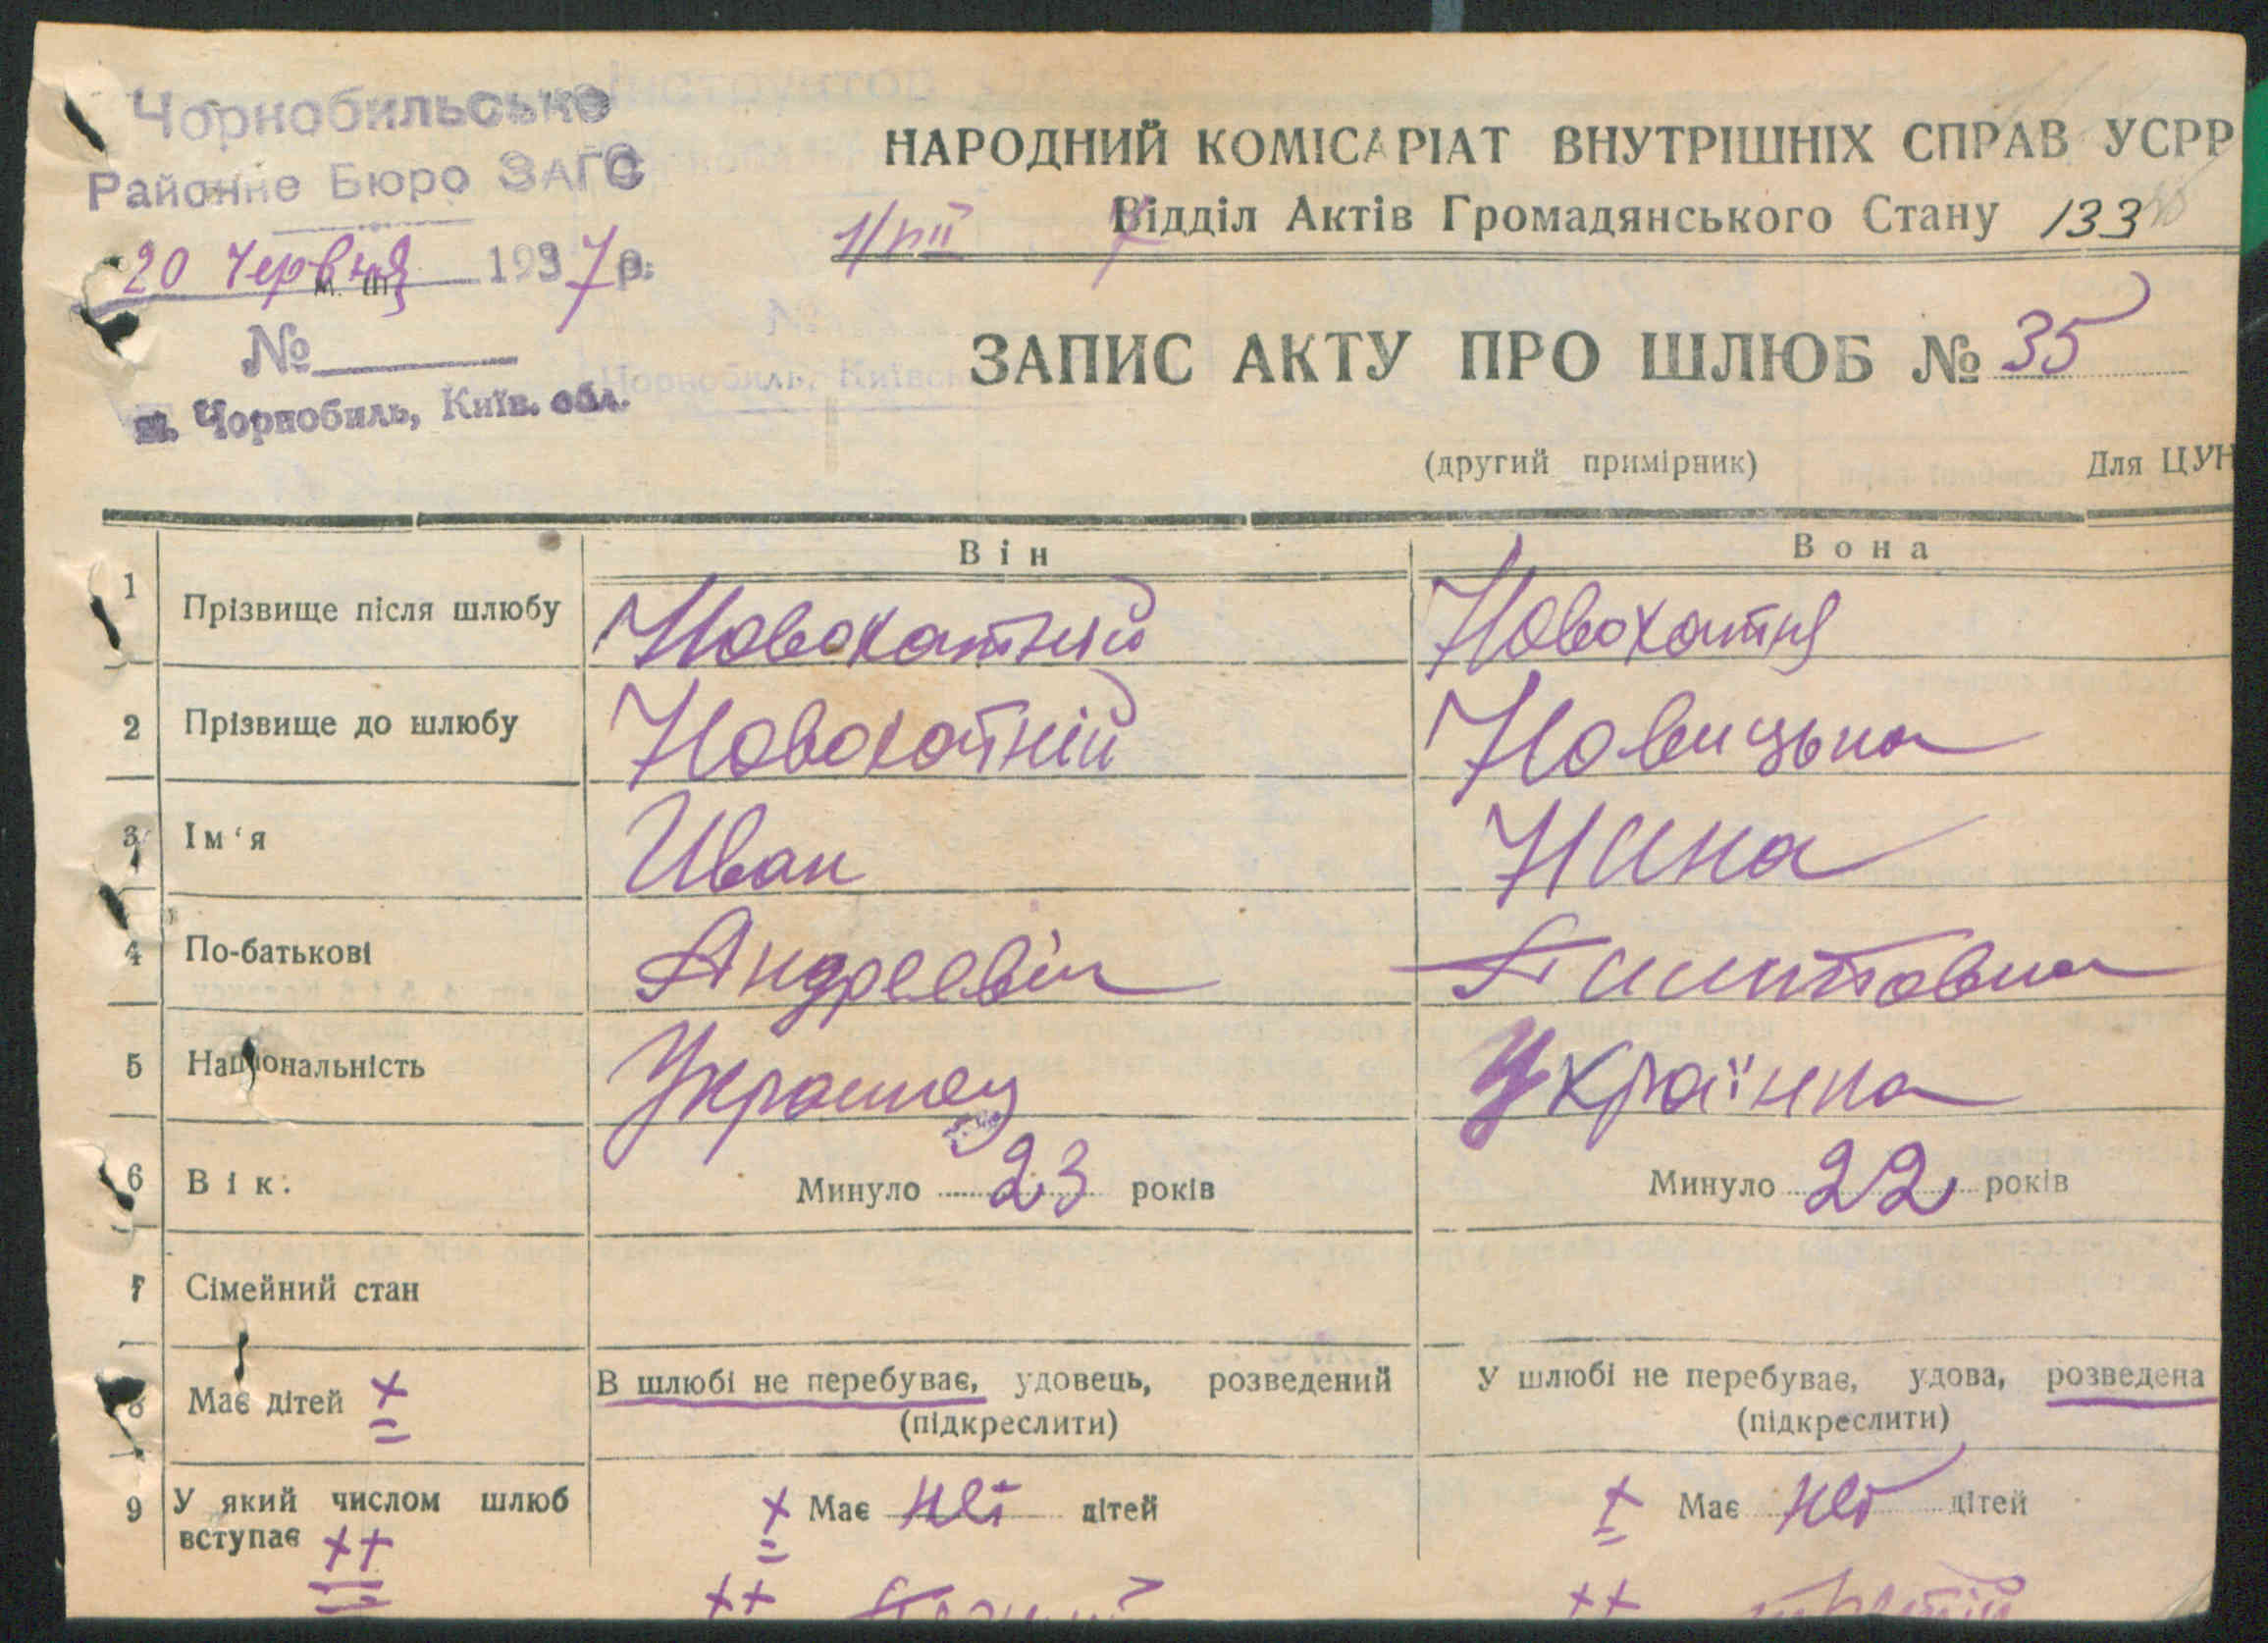 Чорнобильське
Районне Бюро ЗАГС
20 Червня 1937 р.
№
м. Чорнобиль, Київ. обл.
НАРОДНИЙ КОМІСАРІАТ ВНУТРІШНІХ СПРАВ УСРР
Відділ Актів Громадянського Стану 133
ЗАПИС АКТУ ПРО ШЛЮБ № 35
(другий примірник) Для ЦУН
Він Вона
1 Прізвище після шлюбу Новохатний Новохатня
2 Прізвище до шлюбу Новохатній Новицька
3 Ім‘я Иван Нина
4 По-батькові Андреевіч
5 Національність Украинец Українка
6 Вік. Минуло 23 років Минуло 22 років
7 Сімейний стан
8 Має дітей × В шлюбі не перебуває, удовець, розведений У шлюбі не перебуває, удова, розведена
(підкреслити) (підкреслити)
9 У який числом шлюб вступає ×× × Має неі дітей × Має неі дітей
×× ×× третій